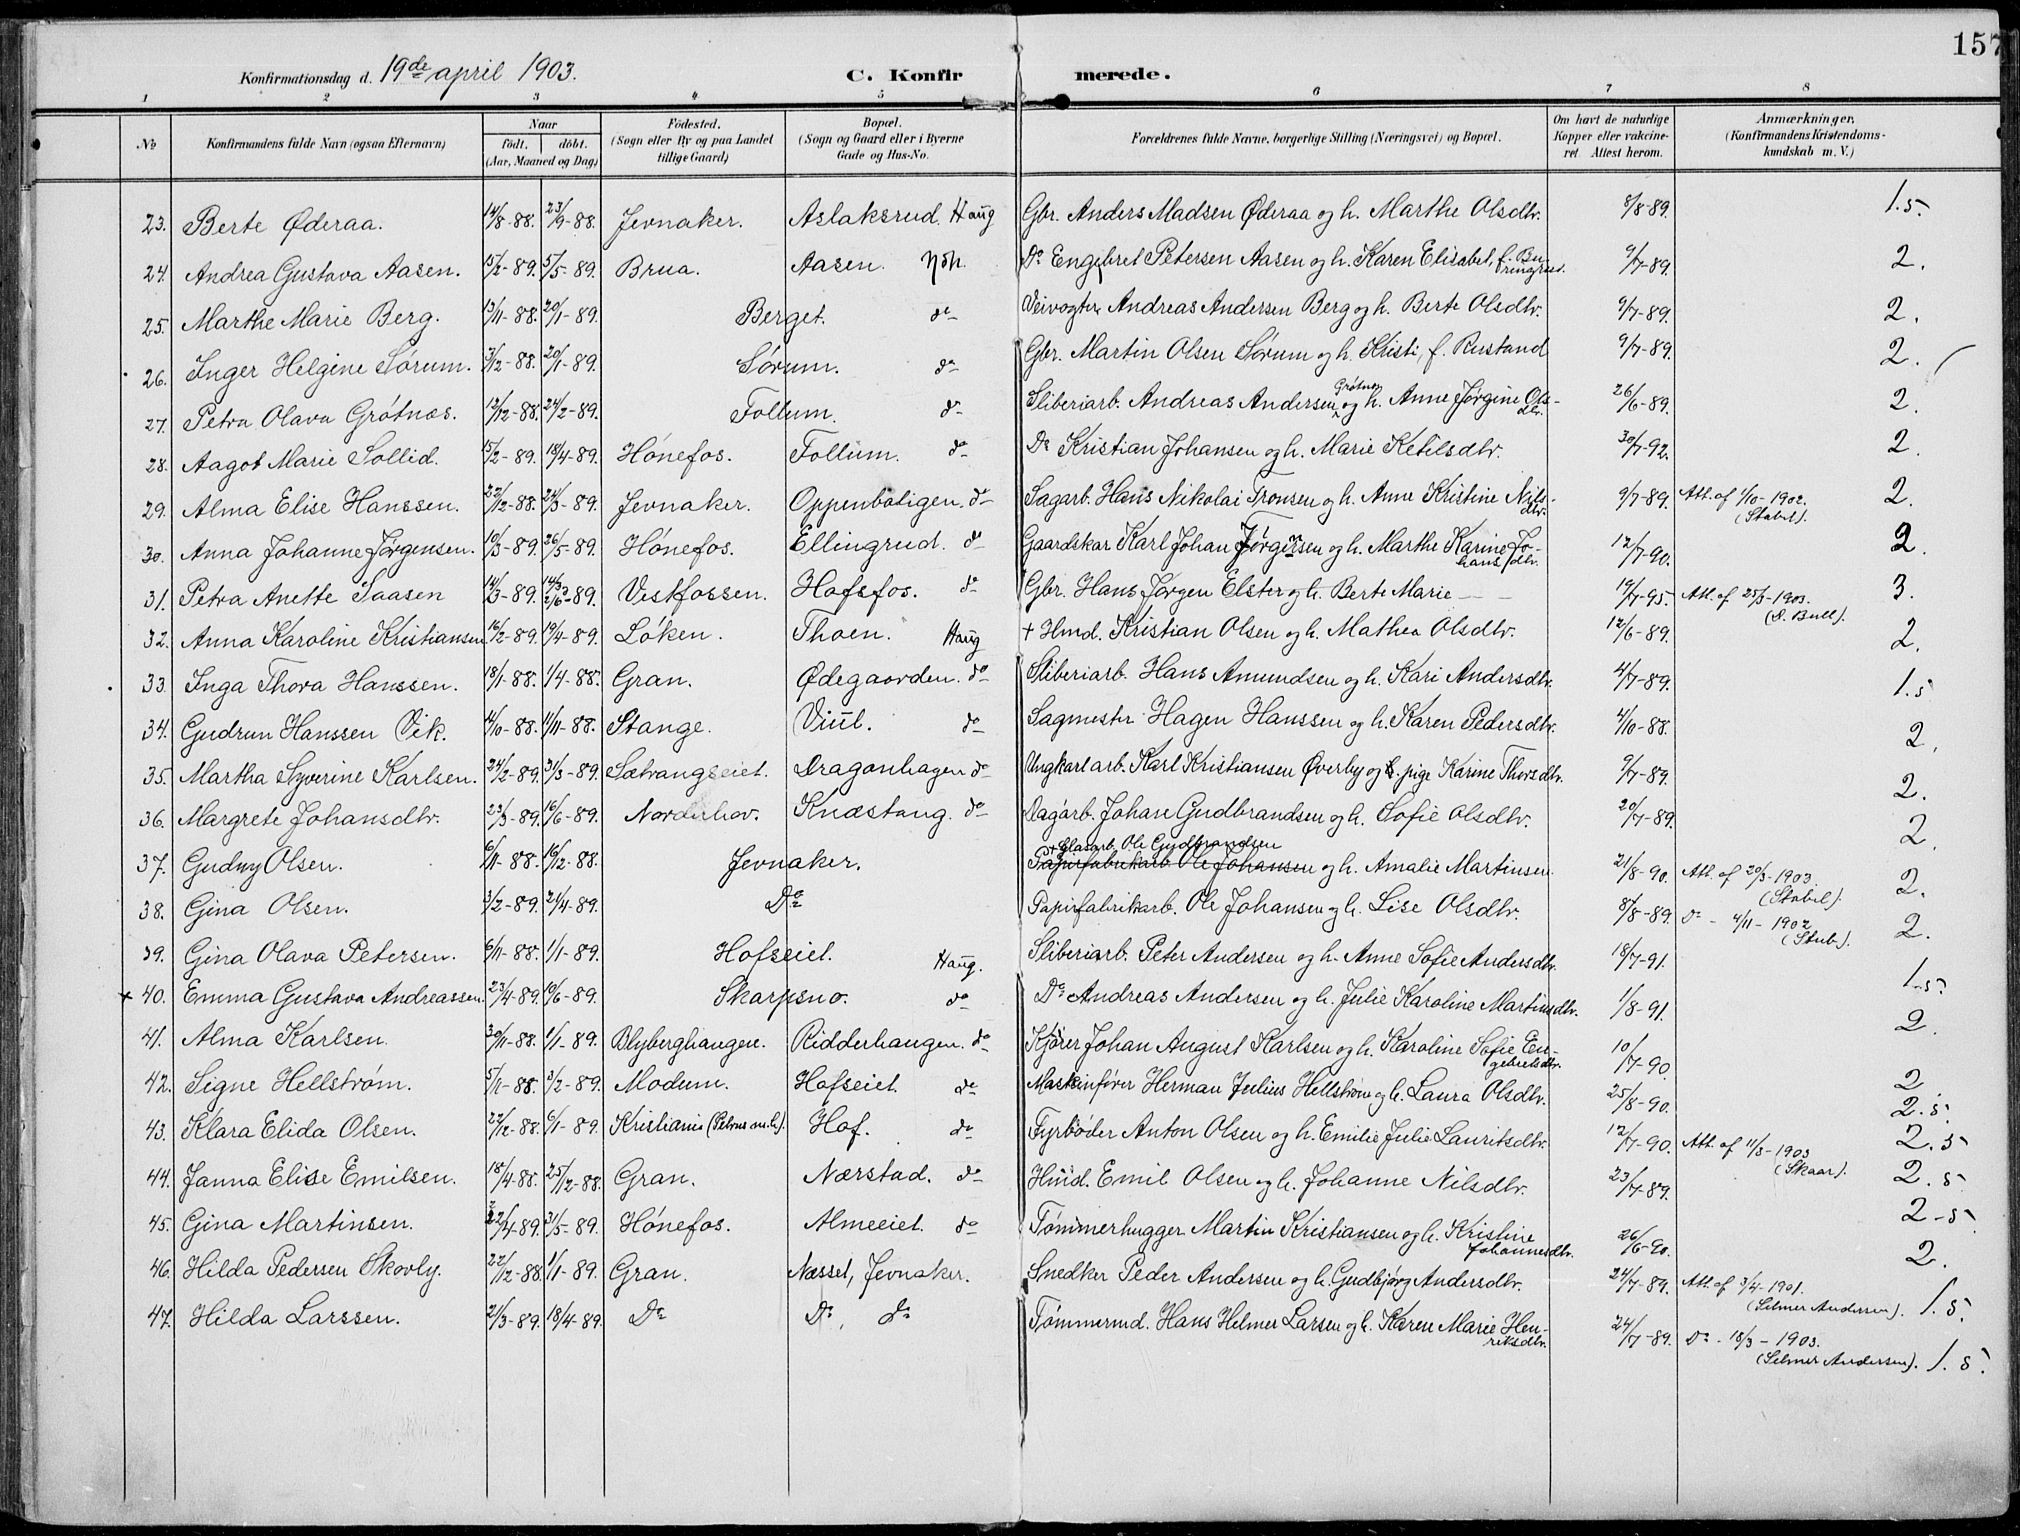 157
Konfirmationsdag d. 19de april 1903. C. Konfirmerede.
1 2 3 4 5 6 7 8
No Konfirmandens fulde Navn (ogsaa Efternavn) Naar født. døbt. (Aar, Maaned og Dag) Fødested. (Sogn eller By og paa Landet tillige Gaard) Bopæl. (Sogn og Gaard eller i Byerne Gade og Hus-No. Forældrenes fulde Navne, borgerlige Stilling (Næringsvei) og Bopæl. Om havt de naturlige Kopper eller vakcineret Attest herom. Anmærkninger. (Konfirmandens Kristendomskundskab m. V.)
23. Berte Øderaa. 14/8-88. 23/9-88. Jevnaker. Aslaksrud. Haug Gbr. Anders Madsen Øderaa og h. Marthe Olsdtr. 8/8-89. 1.5.
24. Andrea Gustava Aasen. 15/2-89. 5/5-89. Brua. Aasen. Ndh. Do Engebret Petersen Aasen og h. Karen Elisabet, f. Bu-ringrud. 9/7-89. 2.
25. Marthe Marie Berg. 13/11-88. 20/1-89. Berget. do Veivogter Andreas Andersen Berg og h. Berte Olsdtr. 9/7-89. 2.
26. Inger Helgine Sørum. 3/12-88. 20/1-89. Sørum. do Gbr. Martin Olsen Sørum og h. Kristi, f. Rustand 9/7-89. 2.
27. Petra Olava Grøtnæs. 12/12-88. 24/2-89. Follum. do Sliberiarb. Andreas Andersen Grøtnæs og h. Anne Jørgine Ols-dtr. 26/6-89. 2.
28. Aagot Marie Sollid. 15/2-89. 18/4-89. Hønefos. Follum. do Do Kristian Johansen og h. Marie Ketilsdtr. 30/7-92. 2.
29. Alma Elise Hanssen. 22/12-88. 24/3-89. Jevnaker. Oppenboligen. do Sagarb. Hans Nikolai Tronsen og h. Anne Kristine Nils-dtr. 9/7-89. Att. af 1/10-1902. (Stabil). 2.
30. Anna Johanne Jørgensen. 10/3-89. 26/5-89. Hønefos. Ellingrud. do Gaardskar Karl Johan Jørgensen og h. Marthe Karine Jo-hansdtr. 12/7-90. 2.
31. Petra Anette Saasen 14/3-89. 14/3 2/6-89. Veskfossen. Hofsfos. do Gbr. Hans Jørgen Elster og h. Berte Marie — — 19/7-95. Att. af 25/3-1903. (S. Bull). 3.
32. Anna Karoline Kristiansen 16/2-89. 19/4-89. Løken. Thoen. Haug + Hmd. Kristian Olsen og h. Mathea Olsdtr. 12/6-89. 2.
33. Inga Thora Hanssen. 18/1-88. 1/4-88. Gran. Ødegaarden. do Sliberiarb. Hans Amundsen og h. Kari Andersdtr. 4/7-89. 1.5
34. Gudrun Hanssen Vik. 4/10-88. 11/11-88. Stange. Viul. do Sagmester Hagen Hanssen og h. Karen Pedersdtr. 4/10-88. 2.
35. Martha Syverine Karlsen. 24/2-89. 31/3-89. Sætrangseiet. Dragonhagen do Ungkarl arb. Karl Kristiansen Øverby og pige Karine Thorsdtr. 9/7-89. 2.
36. Margrete Johansdtr. 23/3-89. 16/6-89. Norderhov. Knæstang. do Dagarb. Johan Gudbrandsen og h. Sofie Olsdtr. 20/7-89. 2.
+ Glasarb. Ole Gudbrandsen
37. Gudny Olsen. 6/11-88. 16/12-88. Jevnaker. Papirfabrikarb. Ole Johansen og h. Amalie Martinsen. 21/8-90. Att. af 20/3-1903. (Stabil). 2.
38. Gina Olsen. 3/2-89. 21/4-89. Do Papirfabrikarb. Ole Johansen og h. Lise Olsdtr. 8/8-89. Do - 4/11-1902 (Stub.). 2.
39. Gina Olava Petersen. 6/11-88. 1/1-89. Hofseiet. Haug. Sliberiarb. Peter Andersen og h. Anne Sofie Andersdtr. 18/7-91. 1.5.
+ 40. Emma Gustava Andreassen. 23/4-89. 10/6-89. Skarpsno. do Do Andreas Andersen og h. Julie Karoline Martinsdtr. 1/8-91. 2.
41. Alma Karlsen. 30/11-88. 1/1-89. Blyberghaugen. Ridderhaugen. do Kjører Johan August Karlsen og h. Karoline Sofie En-gebretsdtr. 10/7-90. 2
42. Signe Hellstrøm. 5/11-88. 3/2-89. Modum. Hofseiet. do Maskinfører Herman Julius Hellstrøm og h. Laura Olsdtr. 25/8-90. 2.5.
43. Klara Elida Olsen. 22/12-88. 6/1-89. Kristiania (Petrus m.h.). Hof. do Fyrbøder Anton Olsen og h. Emilie Julie Lauritsdtr. 12/7-90. Att. af 11/3-1903 (Skaar). 2.5
44. Janna Elise Emilsen. 18/4-88. 25/12-88. Gran. Nærstad. do Hmd. Emil Olsen og h. Johanne Nilsdtr. 23/7-89. 2.5
45. Gina Martinsen. 22/4-89. 31/5-89. Hønefos. Almeeiet. do Tømmerhugger Martin Kristiansen og h. Kristine Johannesdtr. 26/6-90. 2-5
46. Hilda Pedersen Skovly. 22/12-88. 1/1-89. Gran. Næsset, Jevnaker. Snedker Peder Andersen og h. Gudbjørg Andersdtr. 24/7-89. Att. af 3/4-1901. (Selmer Andersen). 2. 1.5.
47. Hilda Larssen. 21/3-89. 18/4-89. Do Do, do Tømmermd. Hans Helmer Larsen og h. Karen Marie Hen-riksdtr. 24/7-89. Do - 18/3-1903. (Selmer Andersen). 1.5.